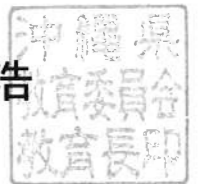 告
沖縄県
教育委員会
教育長印